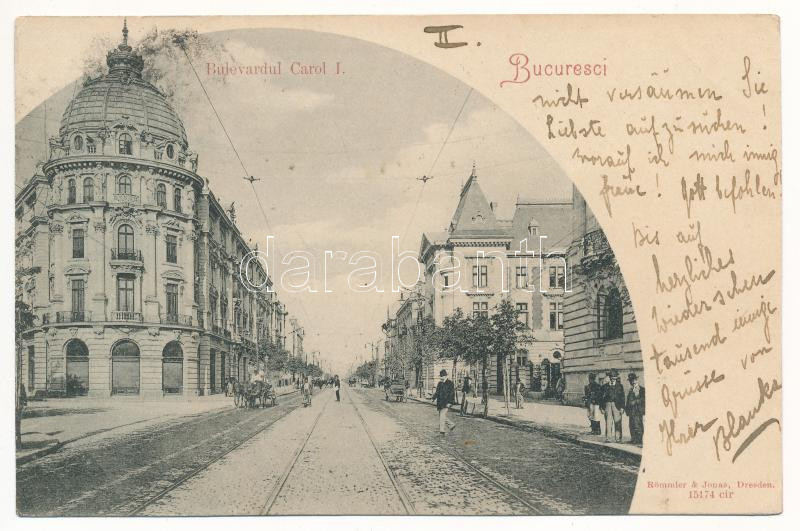 II.
Bulevardul Carol I.
Bucuresci
nicht versäumen Sie
Liebste aufzusuchen!
worauf ich mich innig
freue! Gott befohlen!
Bis auf
herzliches
Wiedersehen
tausend innige
Grüsse von
Ihrer Blanka
darabanth
Römmler & Jonas, Dresden.
15174 cir